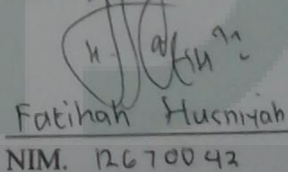 Fatihah Husniyah
NIM. 12670042